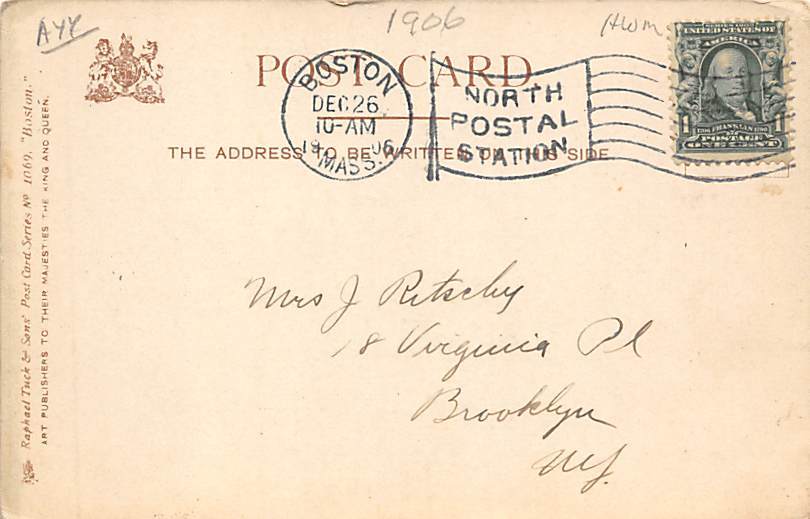 AYY
1906
HWM
POST CARD
BOSTON
DEC 26
10-AM
1906
MASS.
NORTH
POSTAL
STATION
SERIES 1902
UNITED STATES OF
AMERICA
1706 FRANKLIN 1790
1 POSTAGE 1
ONE CENT
THE ADDRESS TO BE WRITTEN ON THIS SIDE
Raphael Tuck & Sons' Post Card Series Nº 1069, "Boston."
ART PUBLISHERS TO THEIR MAJESTIES THE KING AND QUEEN.
Mrs J Ritschy
18 Virginia Pl
Brooklyn
NY.